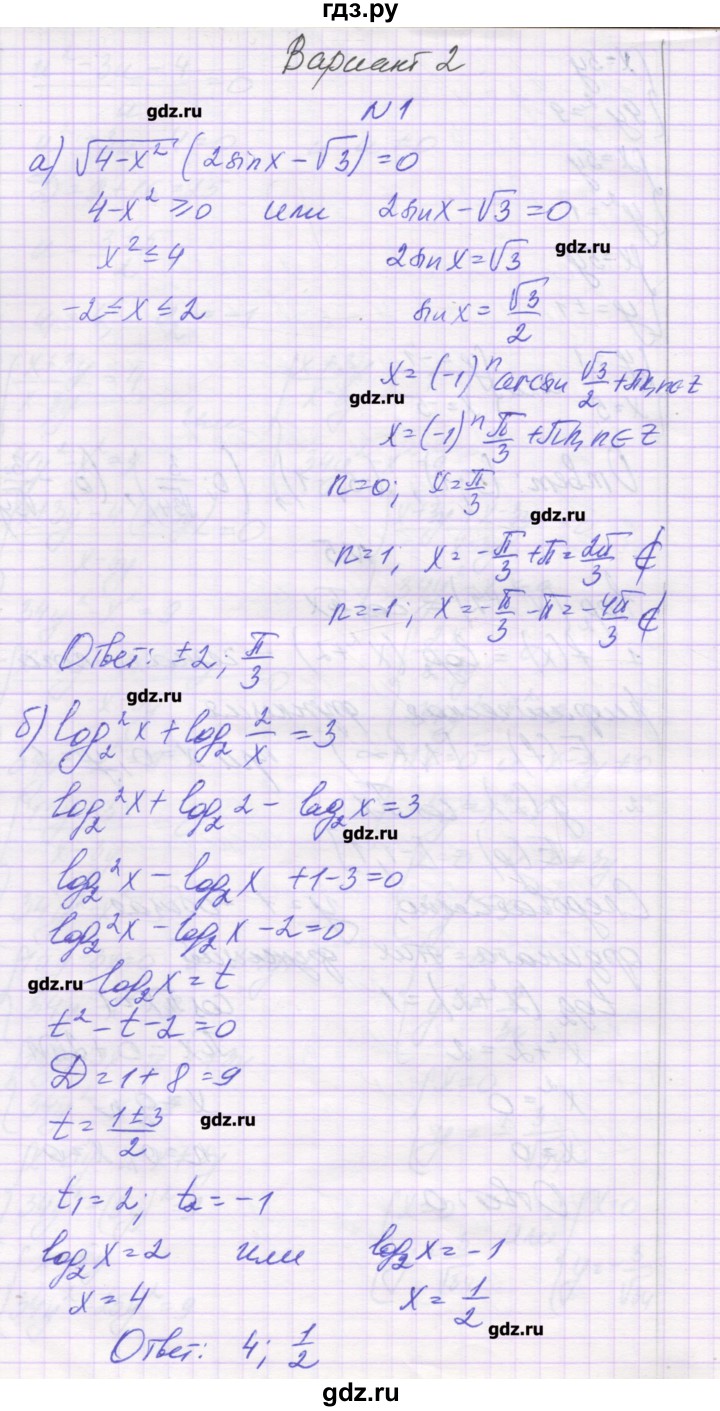 гдз.ру
Вариант 2
gdz.ru
N 1
а) √4-x² (2sinx - √3) = 0
4-x² ≥ 0 или 2sinx - √3 = 0
gdz.ru
x² ≤ 4 2sinx = √3
-2 ≤ x ≤ 2 sinx = √3/2
x = (-1)ⁿ arcsin √3/2 + πn, n∈Z
gdz.ru
x = (-1)ⁿ π/3 + πn, n∈Z
n=0; x = π/3
gdz.ru
n=1; x = -π/3 + π = 2π/3 ∉
n=-1; x = -π/3 - π = -4π/3 ∉
Ответ: ±2; π/3
gdz.ru
б) log₂²x + log₂ 2/x = 3
log₂²x + log₂2 - log₂x = 3
gdz.ru
log₂²x - log₂x + 1-3 = 0
log₂²x - log₂x - 2 = 0
gdz.ru
log₂x = t
t² - t - 2 = 0
D = 1+8 = 9
t = (1±3)/2
gdz.ru
t₁ = 2; t₂ = -1
log₂x = 2 или log₂x = -1
x = 4 x = 1/2
gdz.ru
Ответ: 4; 1/2
gdz.ru